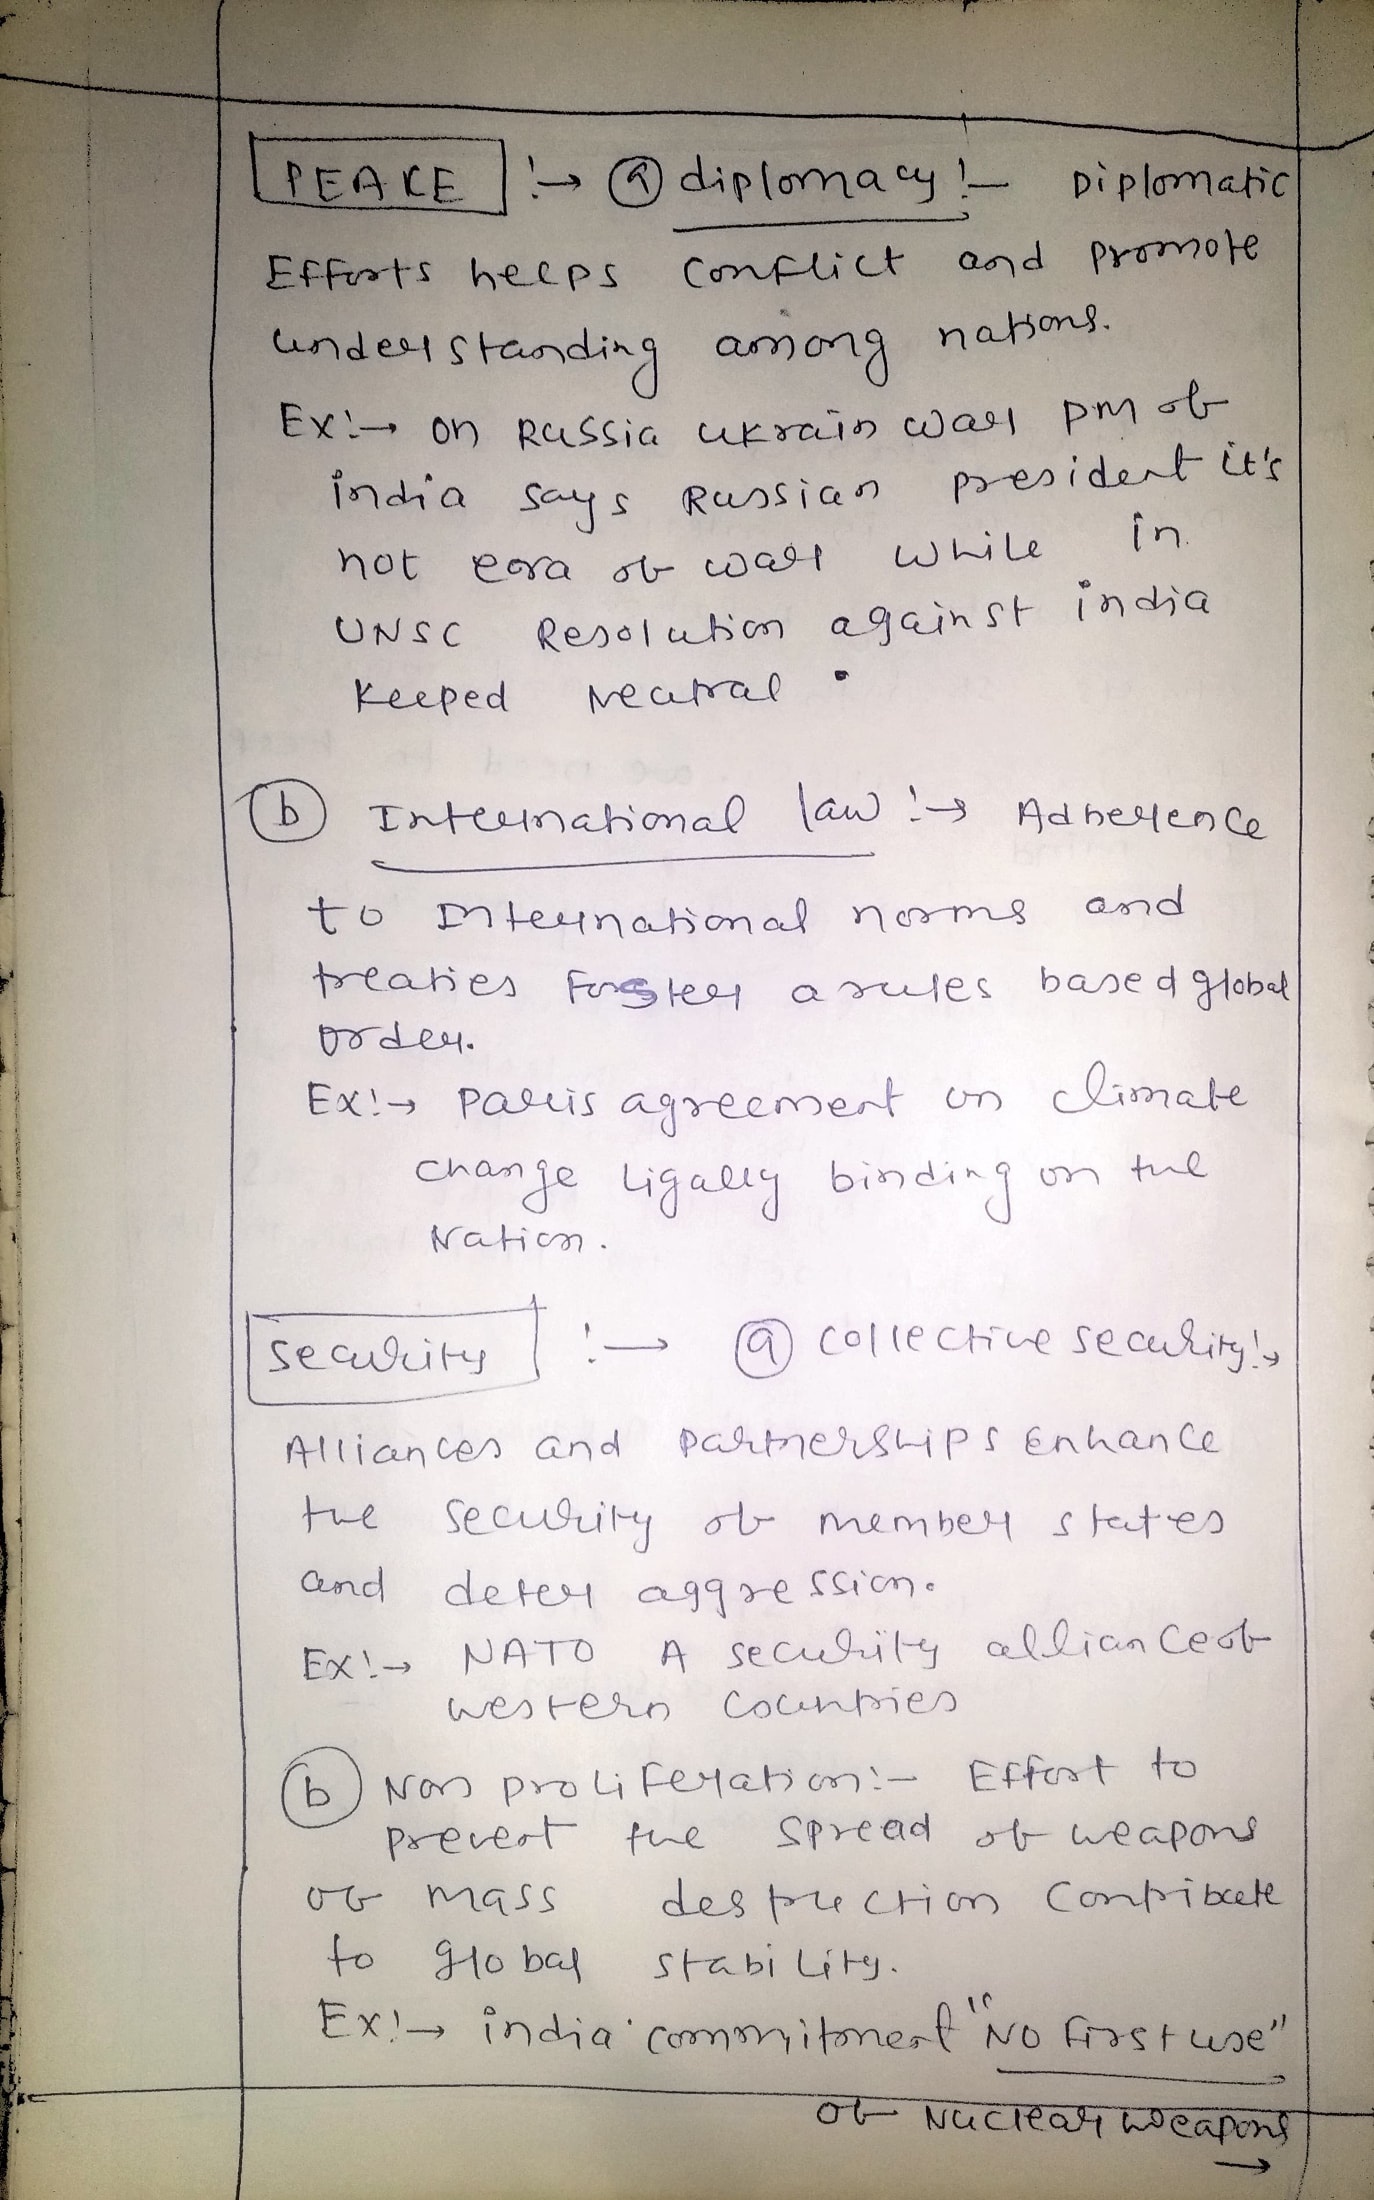 PEACE :→ (a) diplomacy :- Diplomatic
Efforts helps conflict and promote
understanding among nations.
Ex:→ on Russia ukrain war pm of
india says Russian president it's
not eora of war while in
UNSC Resolution against india
keeped Neutral.
(b) International law :→ Adherence
to International norms and
treaties Forster a rules based global
order.
Ex:→ Paris agreement on climate
change ligally binding on the
Nation.
Security :→ (a) Collective security :→
Alliances and partnerships Enhance
the security of member states
and deter aggression.
Ex:→ NATO A security alliance of
western countries
(b) Non proliferation :- Effort to
prevent the spread of weapons
of mass destruction Contribute
to global stability.
Ex:→ india' commitment "No first use"
of Nuclear weapons
→